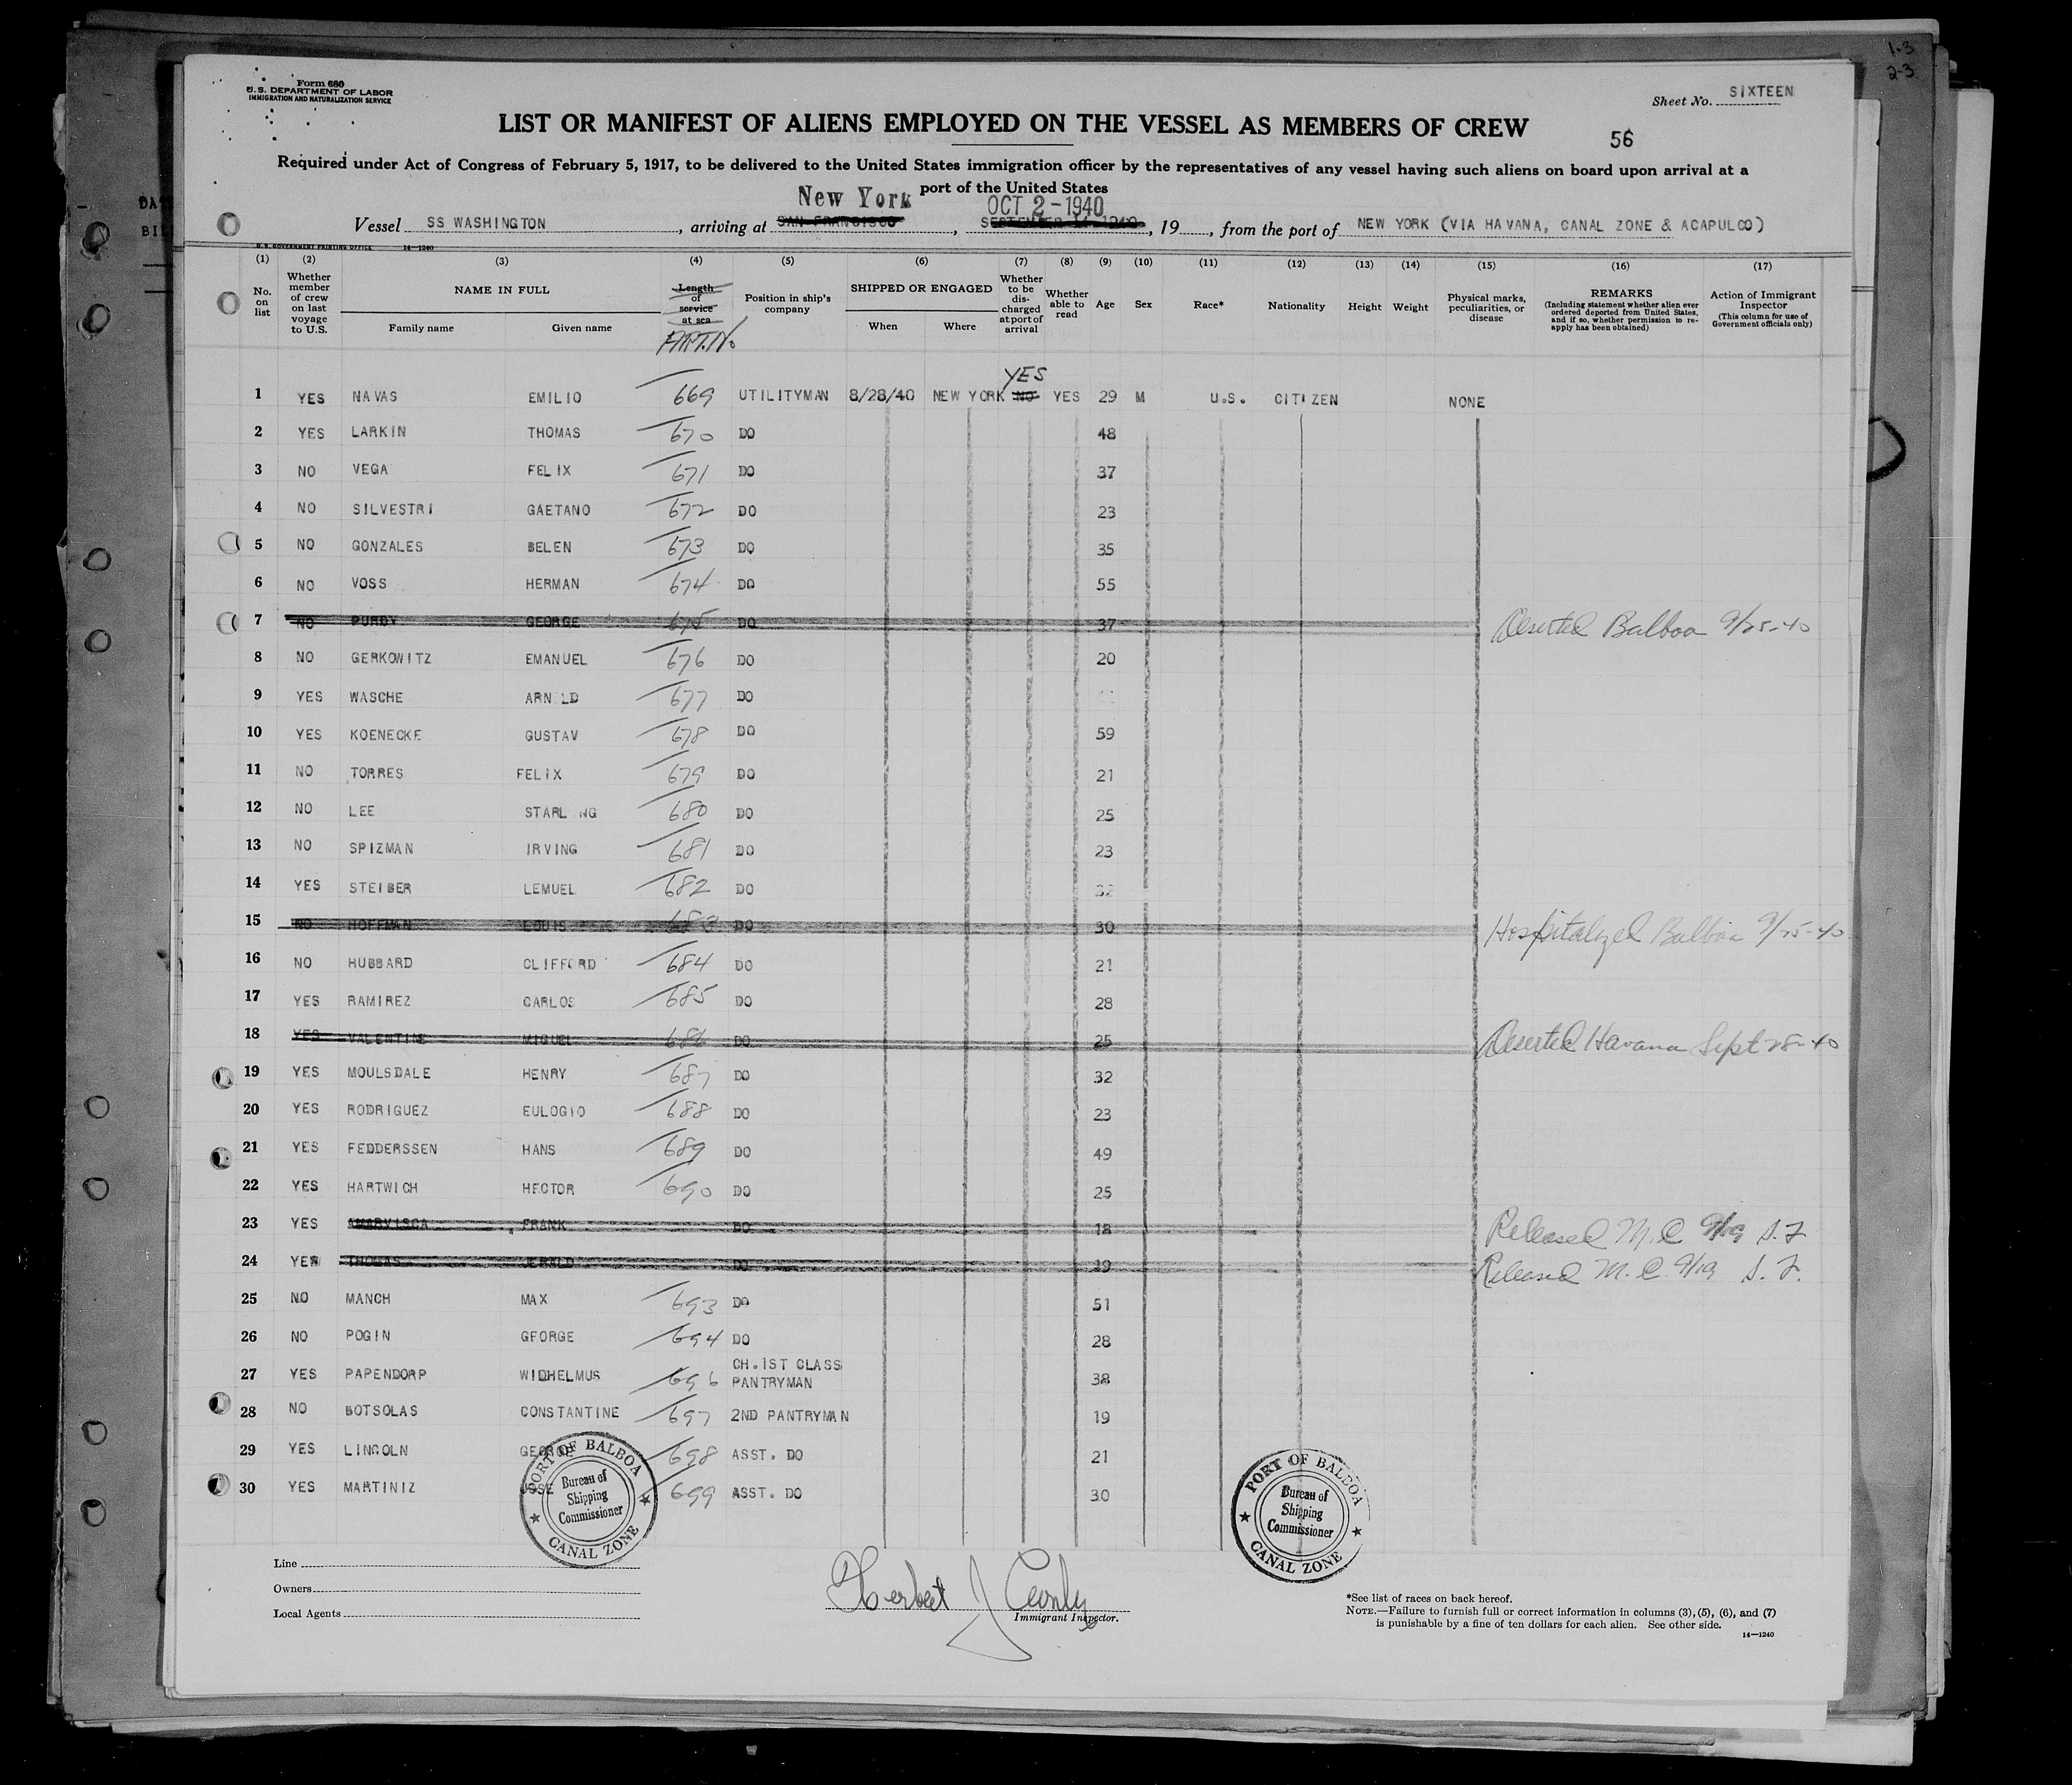 1-3
2-3
Form 680
U.S. DEPARTMENT OF LABOR
IMMIGRATION AND NATURALIZATION SERVICE
Sheet No. SIXTEEN
LIST OR MANIFEST OF ALIENS EMPLOYED ON THE VESSEL AS MEMBERS OF CREW
56
Required under Act of Congress of February 5, 1917, to be delivered to the United States immigration officer by the representatives of any vessel having such aliens on board upon arrival at a
port of the United States
New York OCT 2-1940
Vessel SS WASHINGTON, arriving at SAN FRANCISCO, SEPTEMBER 14 1940, 19, from the port of NEW YORK (VIA HAVANA, CANAL ZONE & ACAPULCO)
U. S. GOVERNMENT PRINTING OFFICE 14-1240
(1) (2) (3) (4) (5) (6) (7) (8) (9) (10) (11) (12) (13) (14) (15) (16) (17)
No. on list
Whether member of crew on last voyage to U.S.
NAME IN FULL
Family name
Given name
Length of service at sea
ART. No.
Position in ship's company
SHIPPED OR ENGAGED
When
Where
Whether to be discharged at port of arrival
Whether able to read
Age
Sex
Race*
Nationality
Height
Weight
Physical marks, peculiarities, or disease
REMARKS
(Including statement whether alien ever ordered deported from United States, and if so, whether permission to reapply has been obtained)
Action of Immigrant Inspector
(This column for use of Government officials only)
YES
1 YES NAVAS EMILIO 669 UTILITYMAN 8/28/40 NEW YORK NO YES 29 M U.S. CITIZEN NONE
2 YES LARKIN THOMAS 670 DO 48
3 NO VEGA FELIX 671 DO 37
4 NO SILVESTRI GAETANO 672 DO 23
5 NO GONZALES BELEN 673 DO 35
6 NO VOSS HERMAN 674 DO 55
7 NO PURDY GEORGE 675 DO 37 Deserted Balboa 9/25-40
8 NO GERKOWITZ EMANUEL 676 DO 20
9 YES WASCHE ARN LD 677 DO
10 YES KOENECKE GUSTAV 678 DO 59
11 NO TORRES FELIX 679 DO 21
12 NO LEE STARL NG 680 DO 25
13 NO SPIZMAN IRVING 681 DO 23
14 YES STEIBER LEMUEL 682 DO 32
15 NO HOFFMAN LOUIS 683 DO 30 Hospitalized Balboa 9/25-40
16 NO HUBBARD CLIFFORD 684 DO 21
17 YES RAMIREZ CARLOS 685 DO 28
18 YES VALENTINE MIGUEL 686 DO 25 Deserted Havana Sept 28-40
19 YES MOULSDALE HENRY 687 DO 32
20 YES RODRIGUEZ EULOGIO 688 DO 23
21 YES FEDDERSSEN HANS 689 DO 49
22 YES HARTWICH HECTOR 690 DO 25
23 YES FRANK DO 18 Released M.C 9/19 S.F
24 YES THOMAS JERALD DO 19 Released M.C. 9/19 S.F.
25 NO MANCH MAX 693 DO 51
26 NO POGIN GEORGE 694 DO 28
27 YES PAPENDORP WIDHELMUS 696 CH.1ST CLASS PANTRYMAN 38
28 NO BOTSOLAS CONSTANTINE 697 2ND PANTRYMAN 19
29 YES LINCOLN GEORGE 698 ASST. DO 21
30 YES MARTINIZ JOSE 699 ASST. DO 30
PORT OF BALBOA
Bureau of
Shipping
Commissioner
CANAL ZONE
PORT OF BALBOA
Bureau of
Shipping
Commissioner
CANAL ZONE
Line
Owners
Local Agents
Herbert J
Immigrant Inspector.
*See list of races on back hereof.
NOTE.—Failure to furnish full or correct information in columns (3), (5), (6), and (7)
is punishable by a fine of ten dollars for each alien. See other side.
14-1240